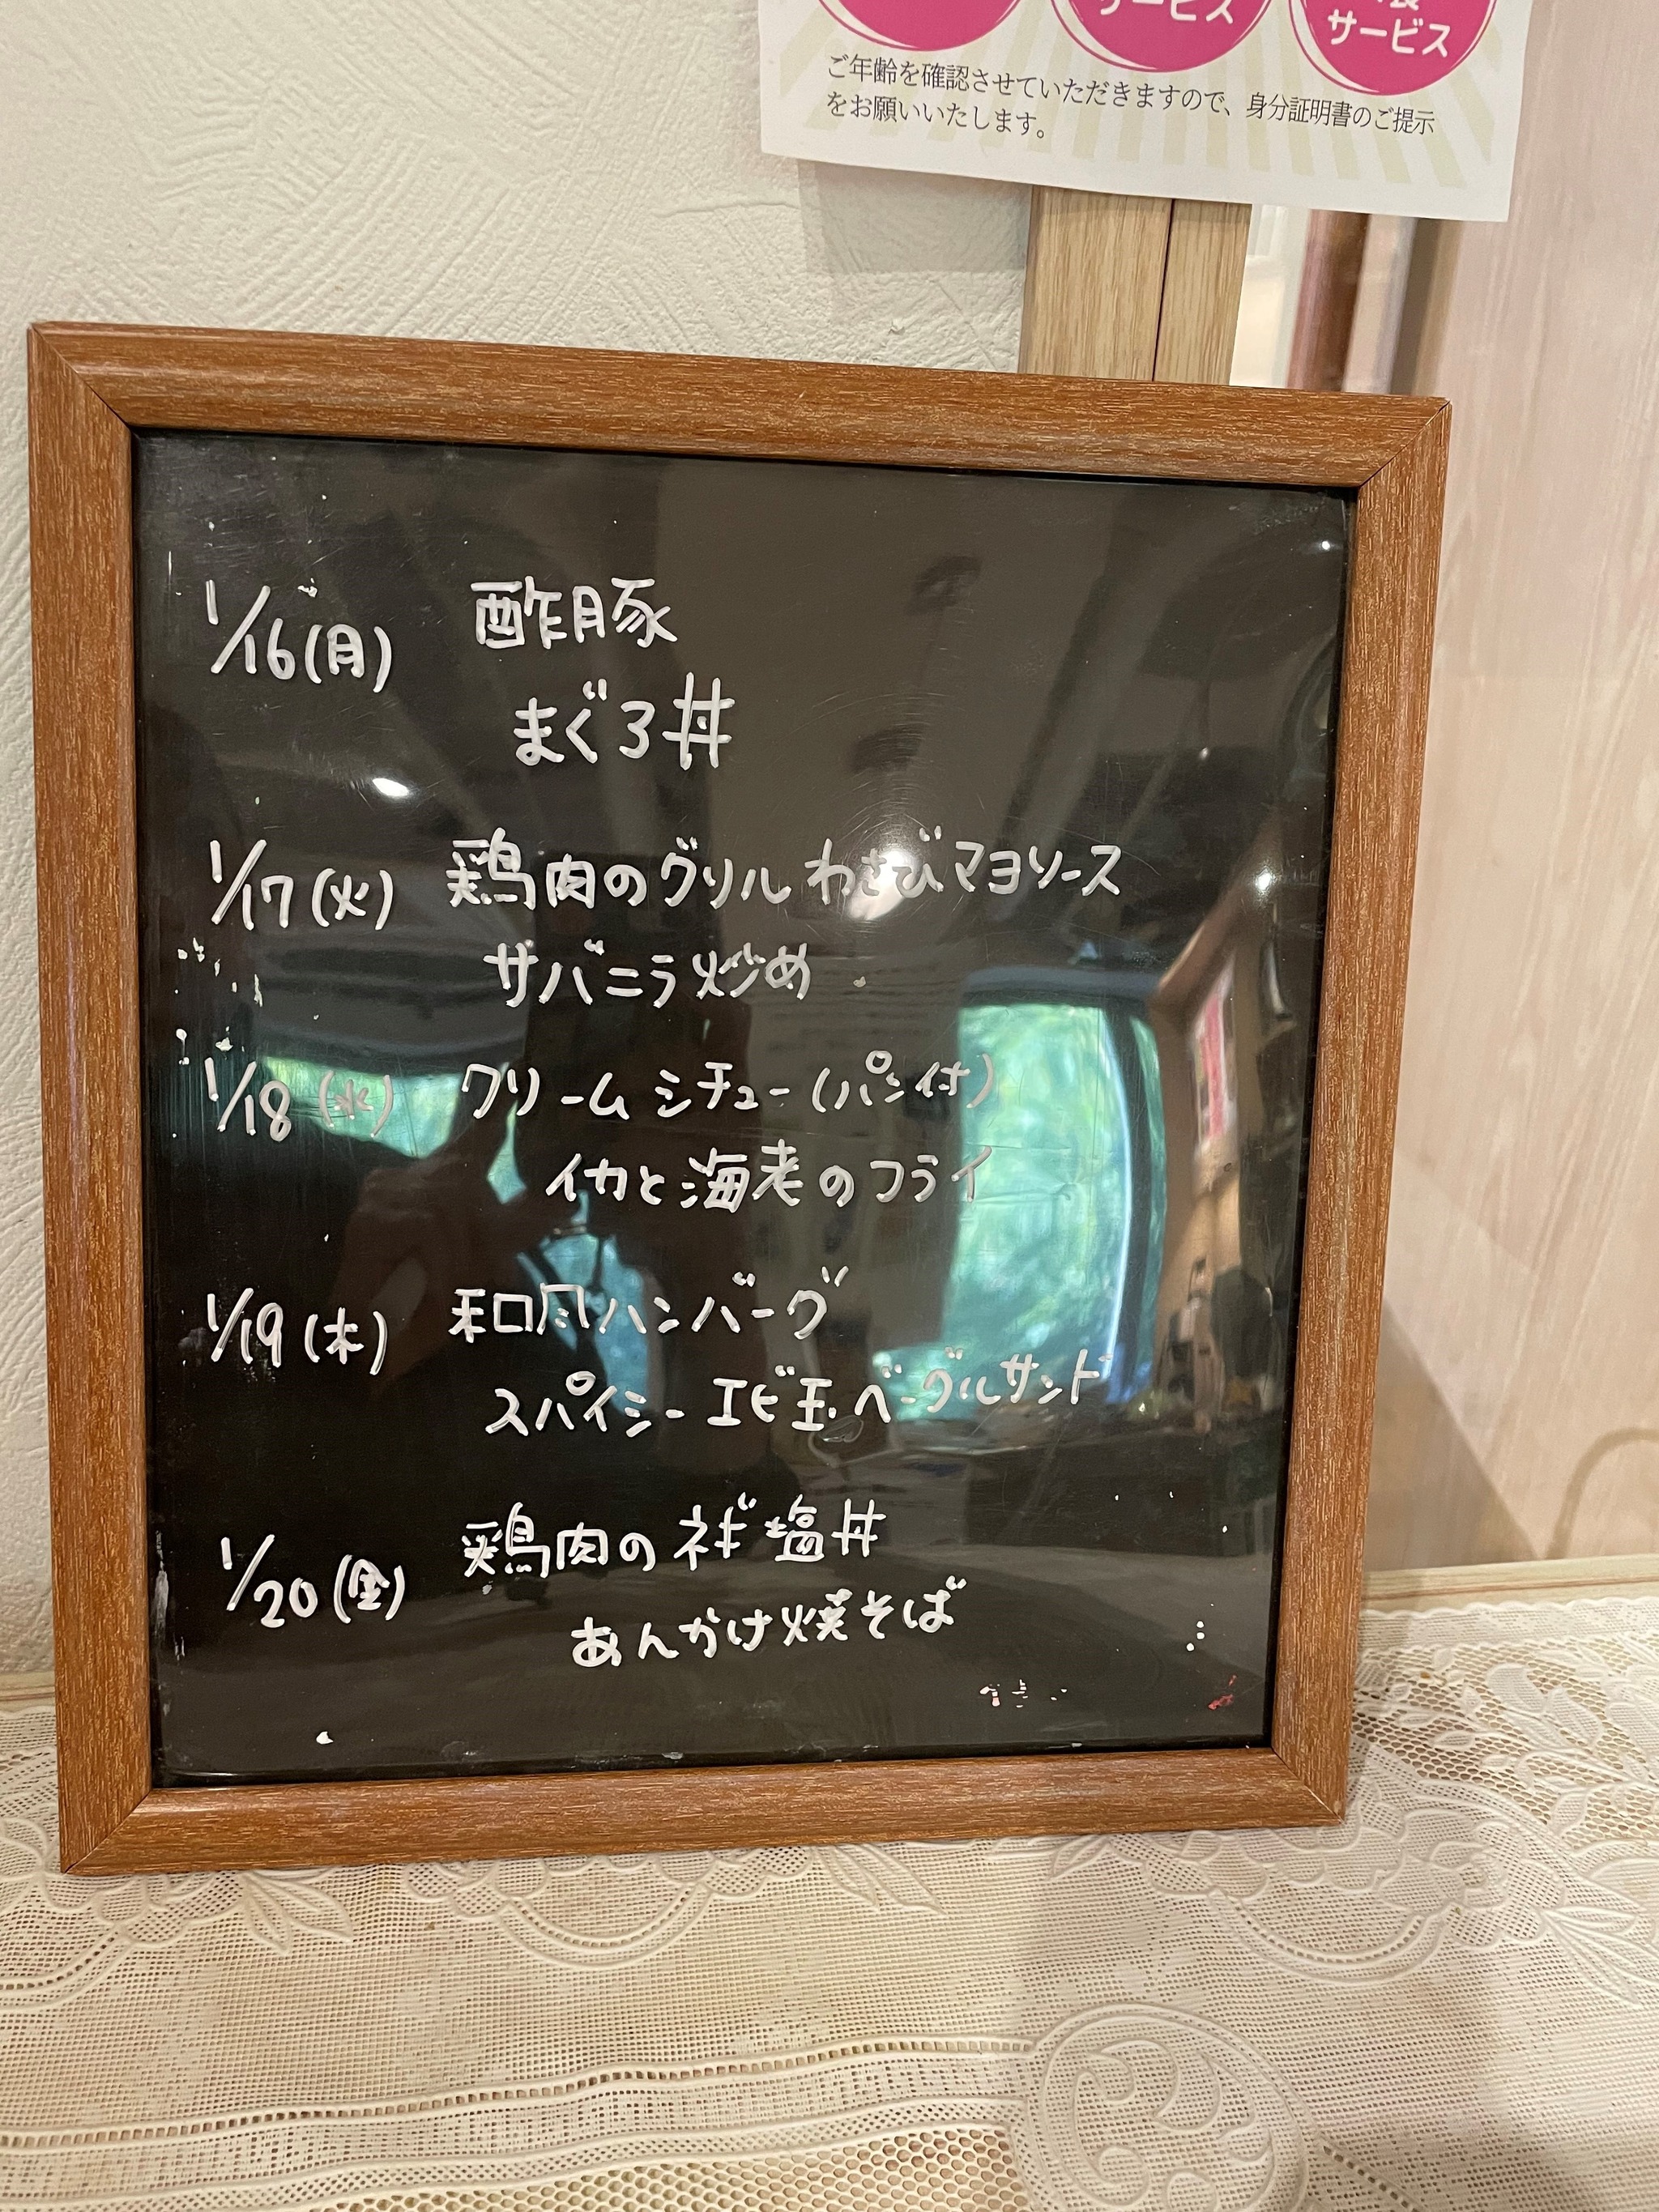 サービス
サービス
ご年齢を確認させていただきますので、身分証明書のご提示
をお願いいたします。
1/16(月) 酢豚
まぐろ丼
1/17(火) 鶏肉のグリル わさびマヨソース
サバニラ炒め
1/18(水) クリームシチュー(パン付)
イカと海老のフライ
1/19(木) 和風ハンバーグ
スパイシーエビ玉ベーグルサンド
1/20(金) 鶏肉のネギ塩丼
あんかけ焼そば